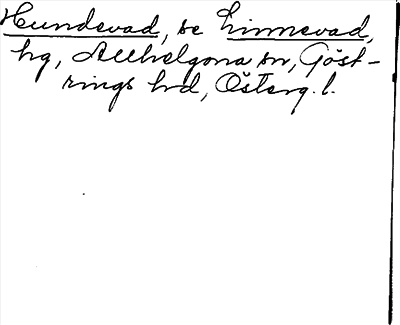 Hundevad, se Linnevad,
hg, Allhelgona sn, Göst-
rings hd, Österg. l.